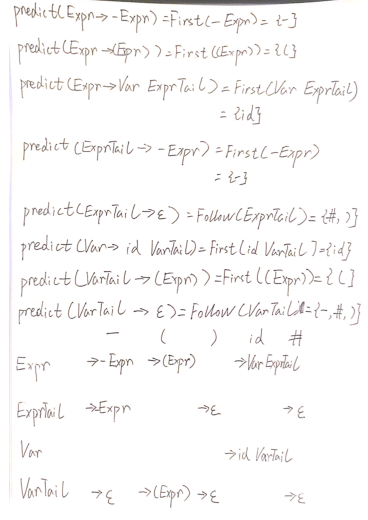 predict(Expr→-Expr)=First(-Expr)={-}
predict(Expr→(Expr))=First((Expr))={(}
predict(Expr→Var ExprTail)=First(Var ExprTail)
={id}
predict(ExprTail→-Expr)=First(-Expr)
={-}
predict(ExprTail→ε)=Follow(ExprTail)={#,)}
predict(Var→id VarTail)=First(id VarTail)={id}
predict(VarTail→(Expr))=First((Expr))={(}
predict(VarTail→ε)=Follow(VarTail)={-,#,)}
- ( ) id #
Expr →-Expr →(Expr) →Var ExprTail
ExprTail →Expr →ε →ε
Var →id VarTail
VarTail →ε →(Expr) →ε →ε